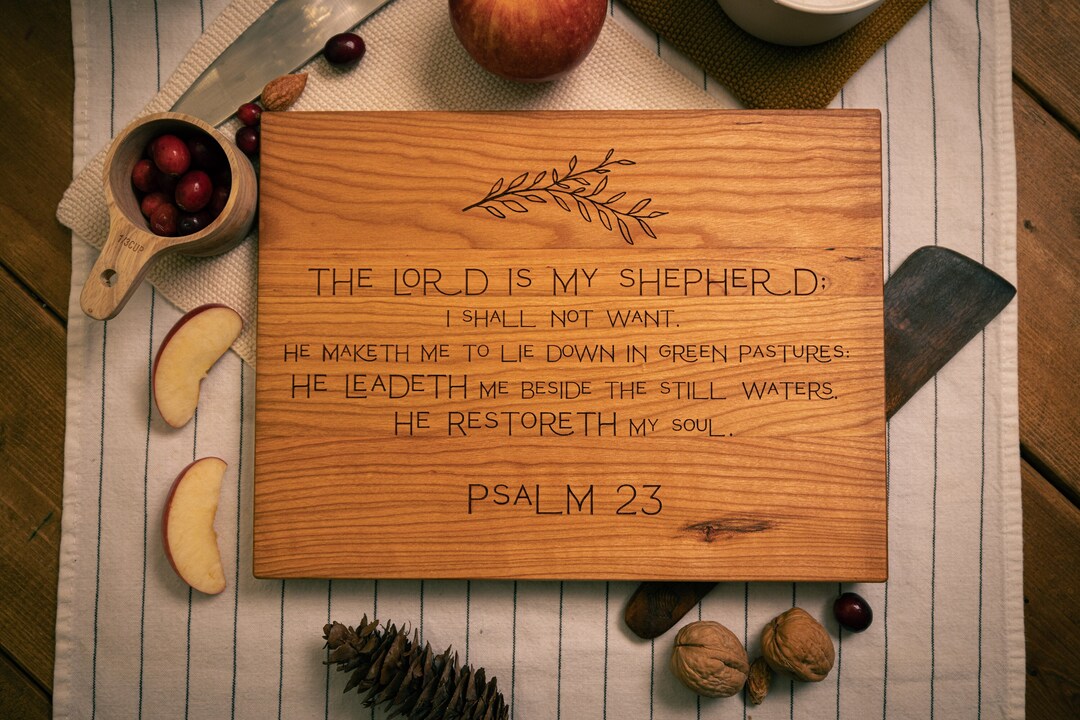 1/3CUP
THE LORD IS MY SHEPHERD;
I SHALL NOT WANT.
HE MAKETH ME TO LIE DOWN IN GREEN PASTURES:
HE LEADETH ME BESIDE THE STILL WATERS.
HE RESTORETH MY SOUL.
PSALM 23